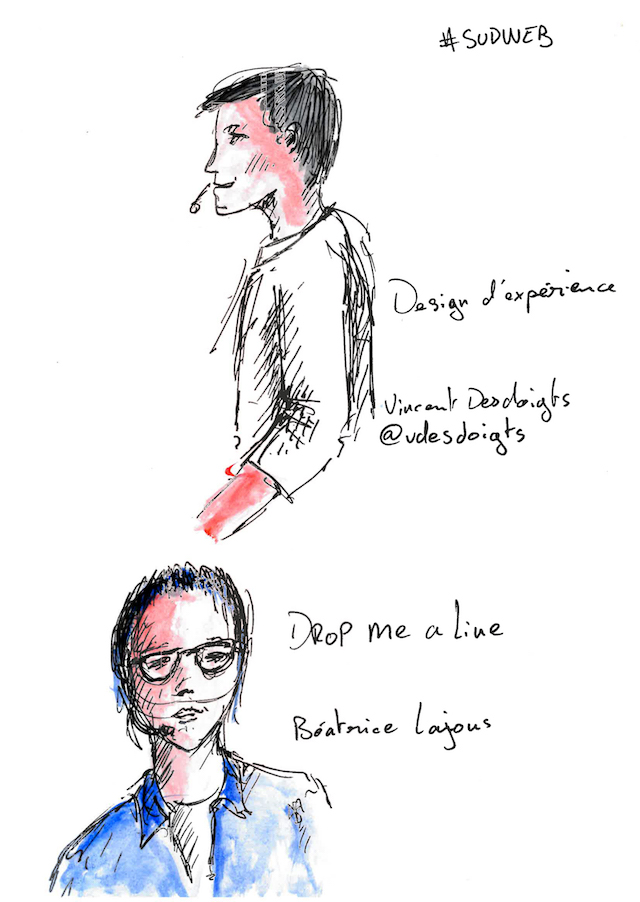 #SUDWEB
Design d'expérience
Vincent Desdoigts
@vdesdoigts
DROP me a line
Béatrice Lajous